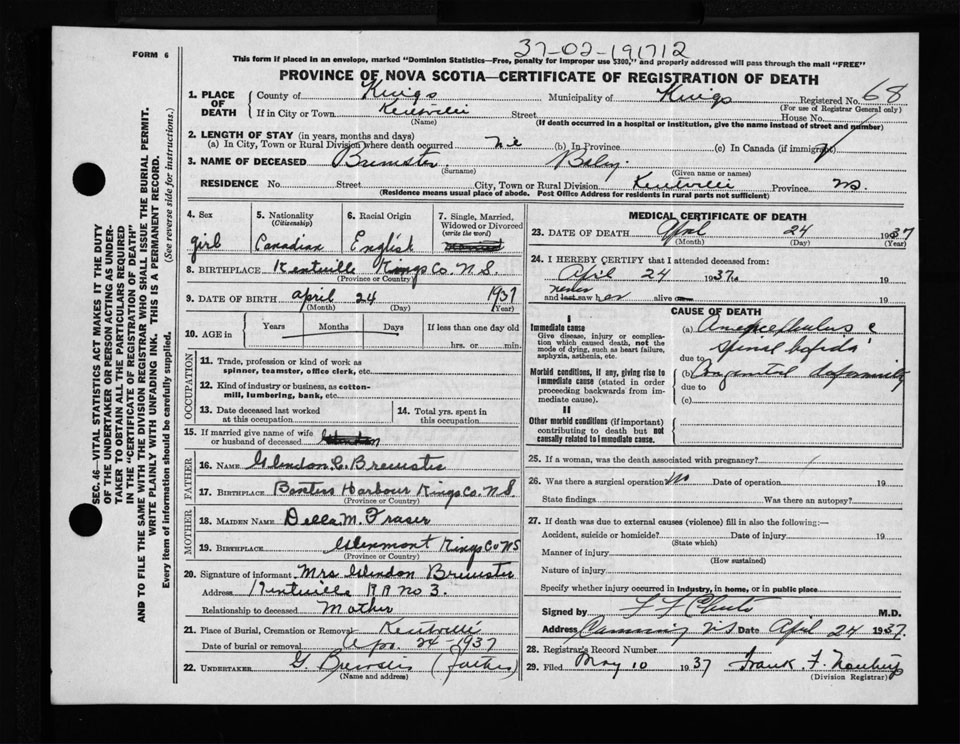 37-02-191712
FORM 6
This form if placed in an envelope, marked "Dominion Statistics—Free, penalty for improper use $300," and properly addressed will pass through the mail "FREE"
PROVINCE OF NOVA SCOTIA—CERTIFICATE OF REGISTRATION OF DEATH
SEC. 46—VITAL STATISTICS ACT MAKES IT THE DUTY
OF THE UNDERTAKER OR PERSON ACTING AS UNDER-
TAKER TO OBTAIN ALL THE PARTICULARS REQUIRED
IN THE "CERTIFICATE OF REGISTRATION OF DEATH"
AND TO FILE THE SAME WITH THE DIVISION REGISTRAR WHO SHALL ISSUE THE BURIAL PERMIT.
WRITE PLAINLY WITH UNFADING INK. THIS IS A PERMANENT RECORD.
Every item of information should be carefully supplied. (See reverse side for Instructions.)
1. PLACE OF DEATH
County of Kings Municipality of Kings Registered No. 68
(For use of Registrar General only)
If in City or Town Kentville Street House No.
(Name) (If death occurred in a hospital or institution, give the name instead of street and number)
2. LENGTH OF STAY (in years, months and days)
(a) In City, Town or Rural Division where death occurred (b) In Province (c) In Canada (if immigrant)
3. NAME OF DECEASED Brewster Baby
(Surname) (Given name or names)
RESIDENCE No. Street City, Town or Rural Division Kentville Province NS.
(Residence means usual place of abode. Post Office Address for residents in rural parts not sufficient)
4. Sex girl
5. Nationality (Citizenship) Canadian
6. Racial Origin English
7. Single, Married, Widowed or Divorced (write the word)
8. BIRTHPLACE Kentville Kings Co. N.S.
(Province or Country)
9. DATE OF BIRTH April 24 1937
(Month) (Day) (Year)
10. AGE in Years Months Days If less than one day
hrs. or min.
OCCUPATION
11. Trade, profession or kind of work as
spinner, teamster, office clerk, etc.
12. Kind of industry or business, as cotton-
mill, lumbering, bank, etc.
13. Date deceased last worked
at this occupation
14. Total yrs. spent in
this occupation
15. If married give name of wife
or husband of deceased
FATHER
16. NAME Glendon C. Brewster
17. BIRTHPLACE Baxters Harbour Kings Co. N.S
(Province or Country)
MOTHER
18. MAIDEN NAME Della M. Fraser
19. BIRTHPLACE Glenmont Kings Co NS
(Province or Country)
20. Signature of informant Mrs Glendon Brewster
Address Kentville RR No 3.
Relationship to deceased Mother
21. Place of Burial, Cremation or Removal Kentville
Date of burial or removal Apr. 24-1937
22. UNDERTAKER G. Brewster (father)
(Name and address)
MEDICAL CERTIFICATE OF DEATH
23. DATE OF DEATH April 24 1937
(Month) (Day) (Year)
24. I HEREBY CERTIFY that I attended deceased from:
April 24 1937 19
never
and last saw her alive on 19
CAUSE OF DEATH
I
Immediate cause
Give disease, injury or complication which caused death, not the mode of dying, such as heart failure, asphyxia, asthenia, etc.
(a) Anencephalus c
spinal bifida
due to
Morbid conditions, if any, giving rise to immediate cause (stated in order proceeding backwards from immediate cause).
(b) Congenital deformity
due to
(c)
II
Other morbid conditions (if important) contributing to death but not causally related to immediate cause.
25. If a woman, was the death associated with pregnancy?
26. Was there a surgical operation? No Date of operation 19
State findings Was there an autopsy?
27. If death was due to external causes (violence) fill in also the following:—
Accident, suicide or homicide? Date of injury 19
(State which)
Manner of injury
(How sustained)
Nature of injury
Specify whether injury occurred in industry, in home, or in public place
Signed by M.D.
Address Canning NS Date April 24 1937.
28. Registrar's Record Number
29. Filed May 10 1937 Frank F.
(Division Registrar)